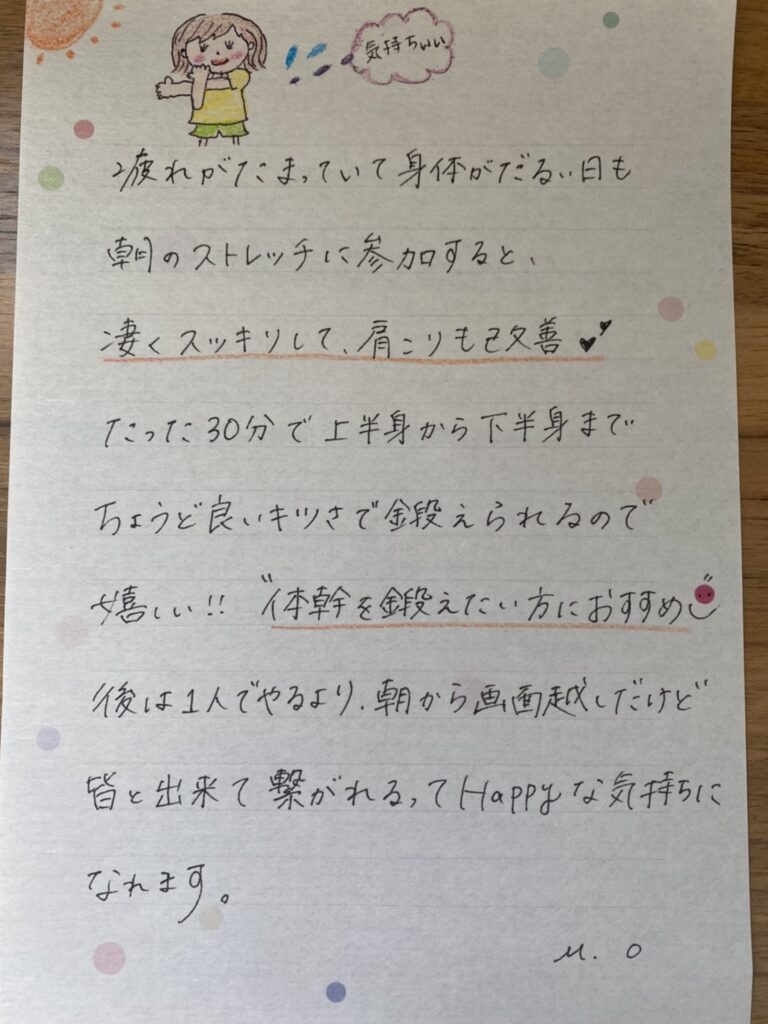 気持ちいい
疲れがたまっていて身体がだるい日も
朝のストレッチに参加すると、
凄くスッキリして、肩こりも改善
たった30分で上半身から下半身まで
ちょうど良いキツさで鍛えられるので
嬉しい!! "体幹を鍛えたい方におすすめ"
後は1人でやるより、朝から画面越しだけど
皆と出来て繋がれるってHappyな気持ちに
なれます。
M. O